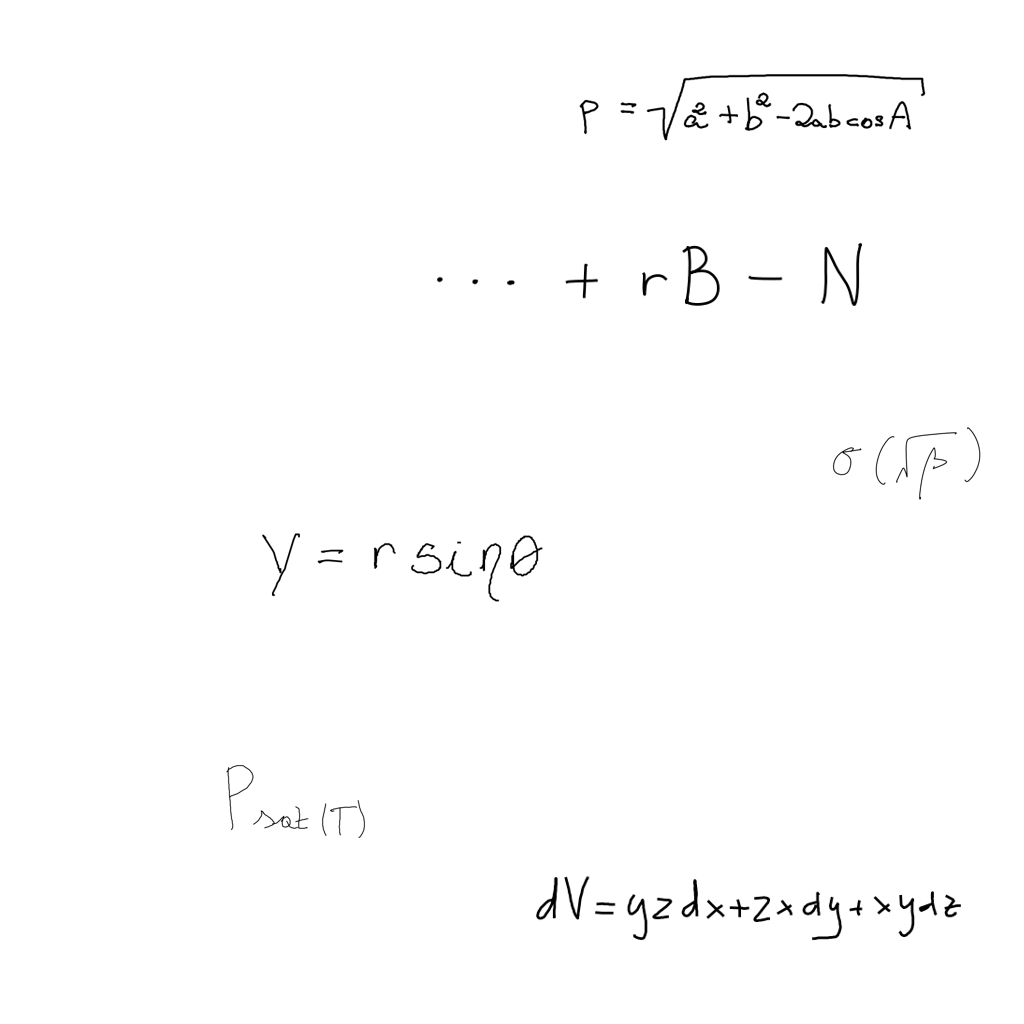 p = √(a² + b² - 2ab cos A)
... + rB - N
σ(√β)
y = r sin θ
P_{sat(T)}
dV = yzdx + zxdy + xydz